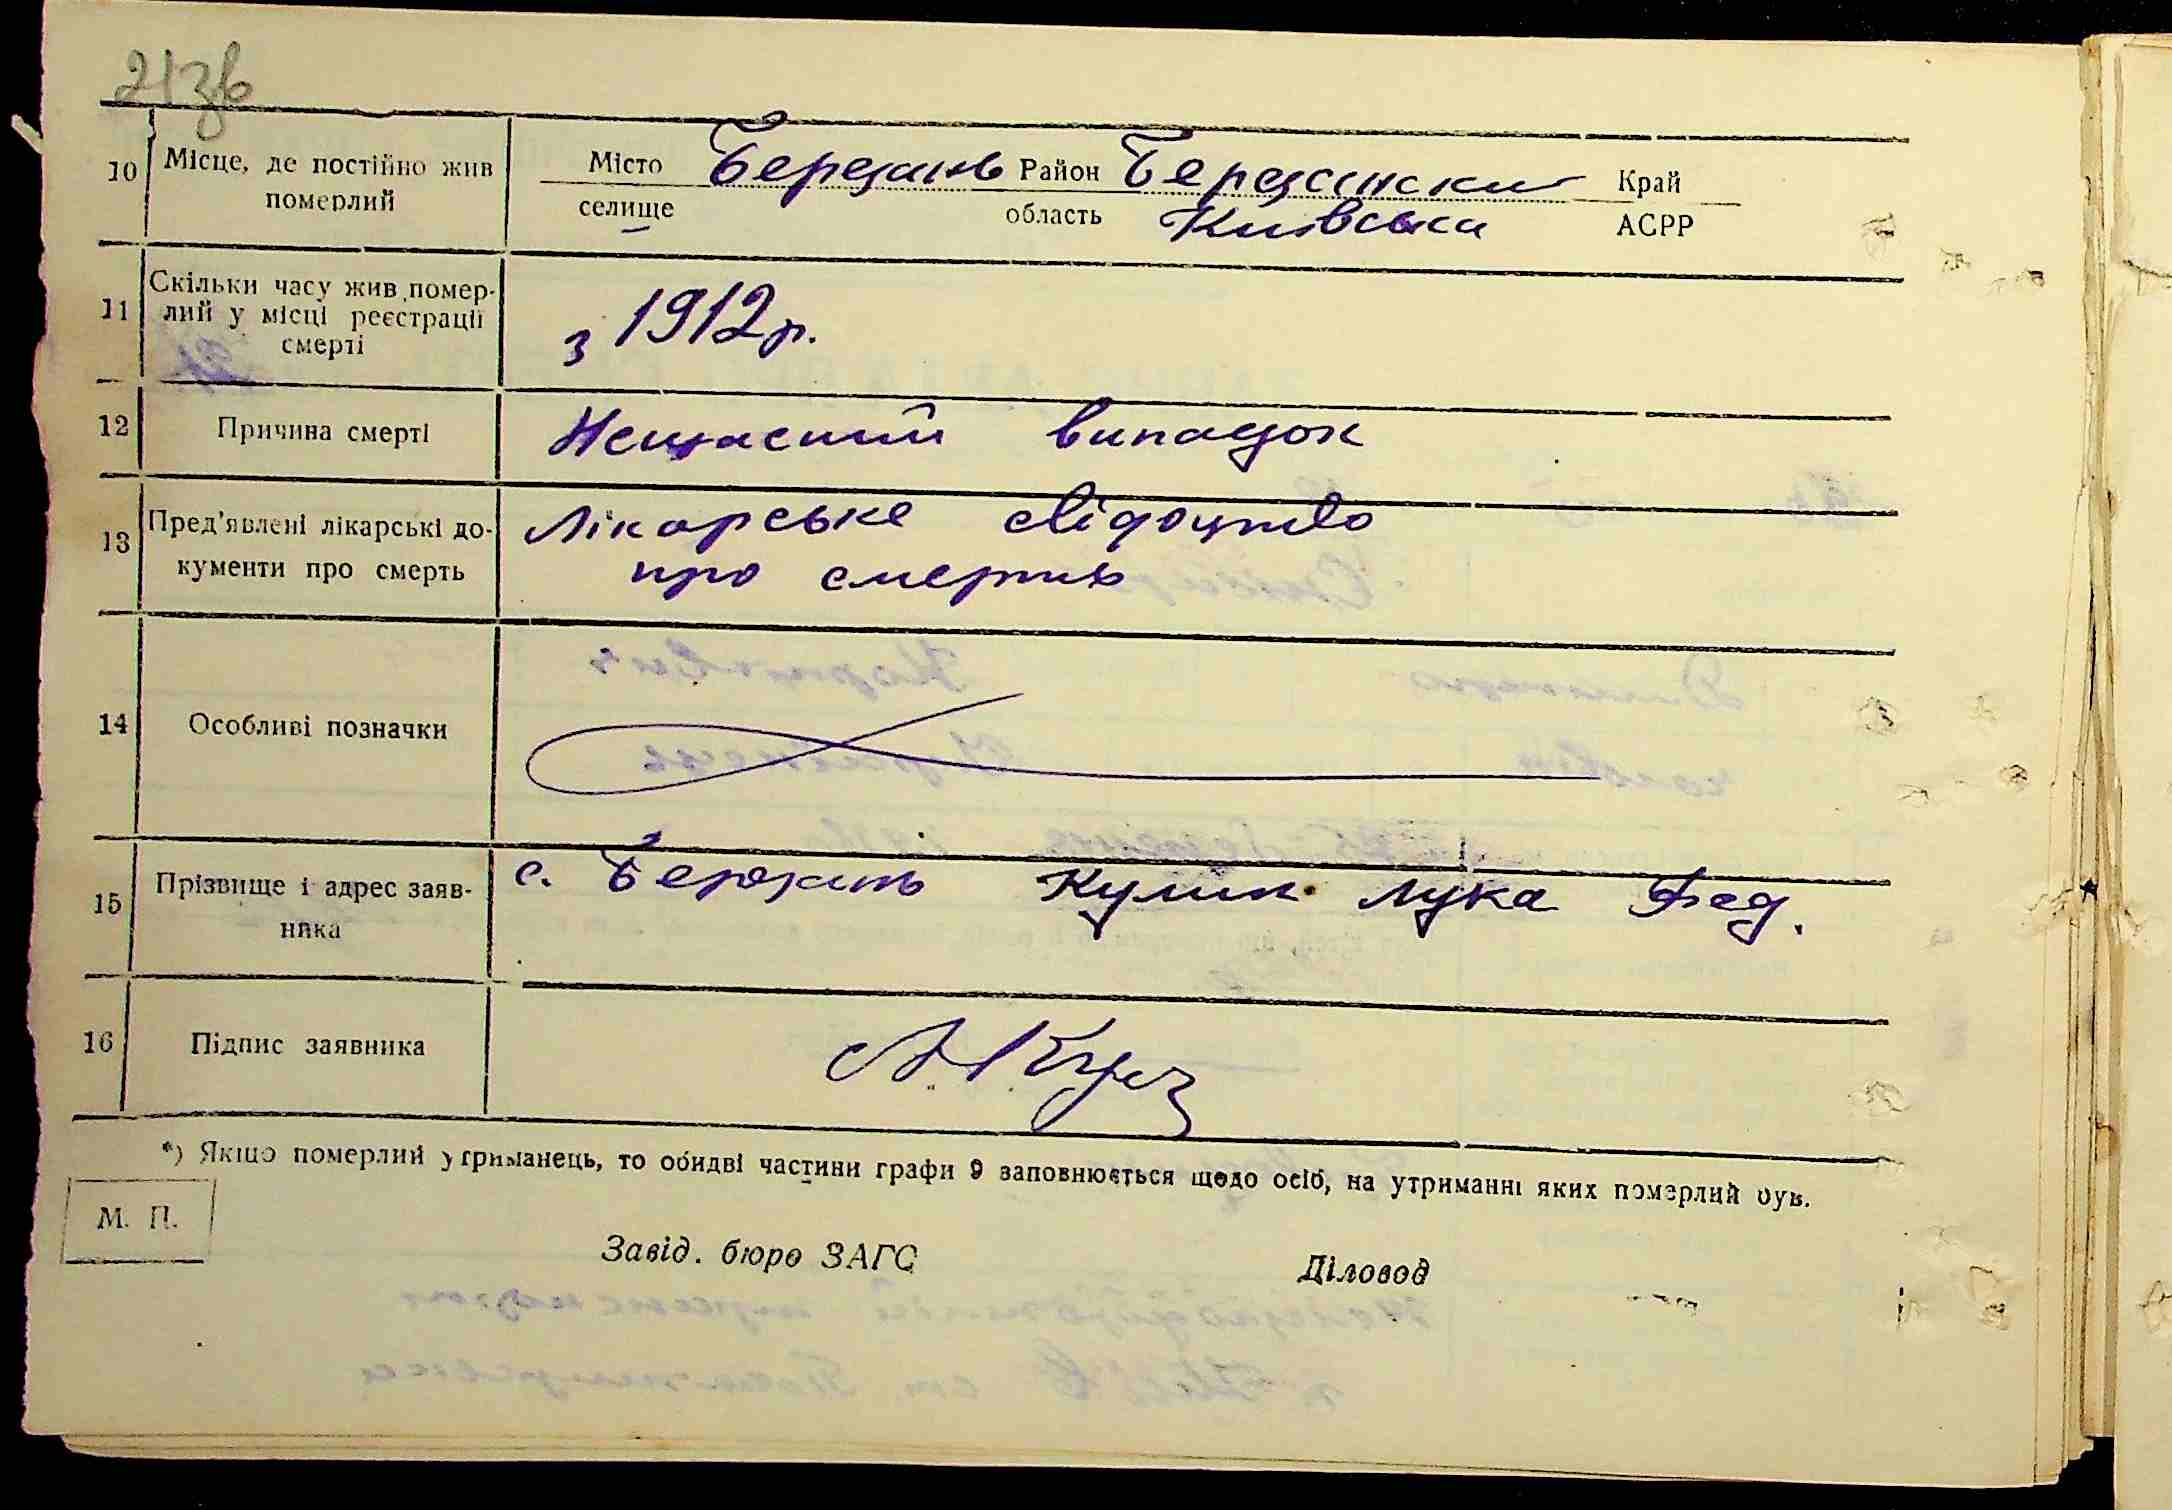 21зв
10 Місце, де постійно жив померлий Місто Березань Район Березанский Край
селище область Київська АСРР
11 Скільки часу жив помер-
лий у місці реєстрації
смерті
з 1912 р.
12 Причина смерті Нещасний випадок
13 Пред'явлені лікарські до-
кументи про смерть
Лікарське свідоцтво
про смерть
14 Особливі позначки
15 Прізвище і адрес заяв-
ника
с. Березань Кулик Лука Фед.
16 Підпис заявника
*) Якщо померлий утриманець, то обидві частини графи 9 заповнюється щодо осіб, на утриманні яких померлий був.
М. П.
Завід. бюро ЗАГС Діловод